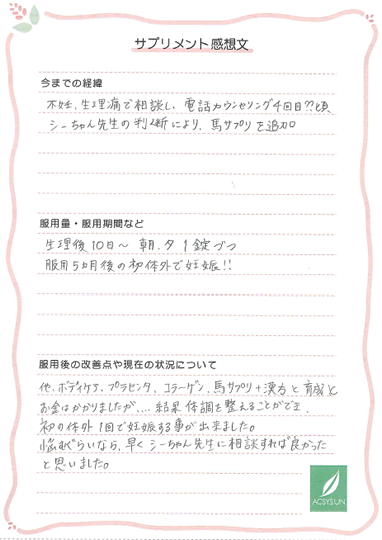 サプリメント感想文
今までの経緯
不妊、生理痛で相談し、電話カウンセリング4回目??頃
シーちゃん先生の判断により、馬サプリを追加
服用量・服用期間など
生理後10日～ 朝.夕 1錠づつ
服用5カ月後の初体外で妊娠!!
服用後の改善点や現在の状況について
他、ボディケア、プラセンタ、コラーゲン、馬サプリ+漢方と育成と
お金はかかりましたが、... 結果 体調を整えることができ、
初の体外1回で妊娠する事が出来ました。
悩むぐらいなら、早くシーちゃん先生に相談すれば良かった
と思いました。
ACSYSUN